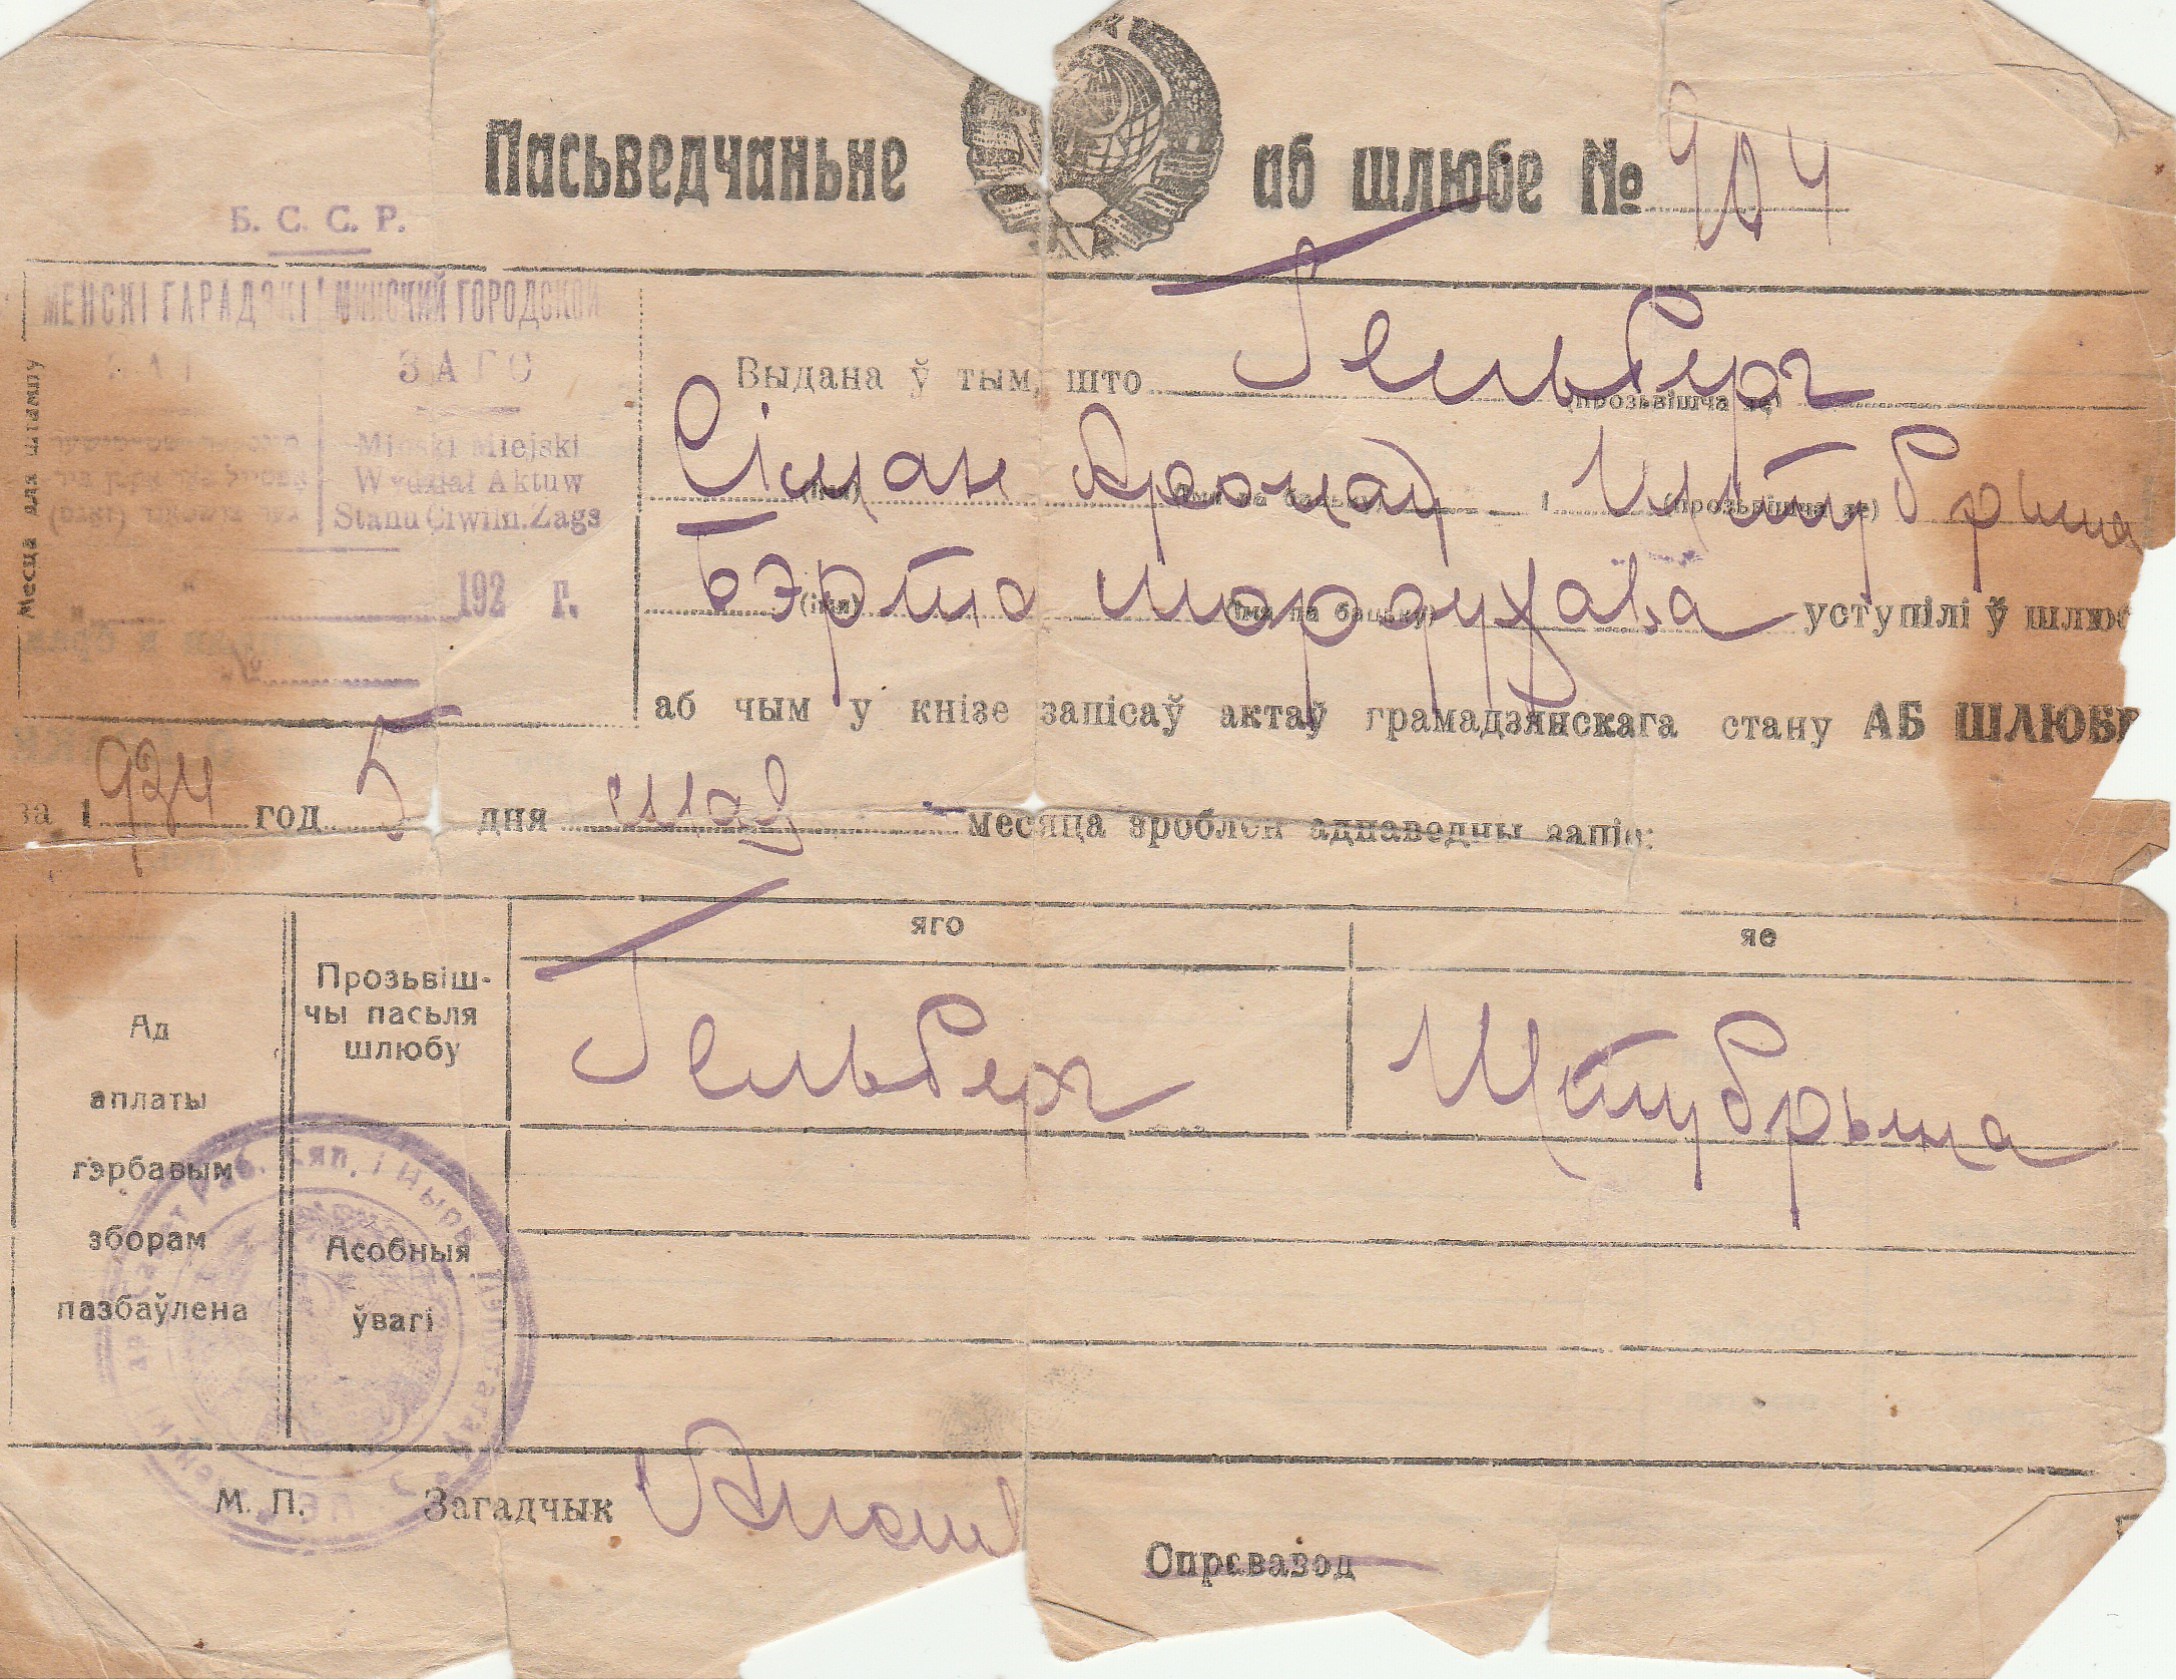 Пасьведчаньне аб шлюбе № 904
Б. С. С. Р.
МЕНСКІ ГАРАДЗКІ
МИНСКИЙ ГОРОДСКОЙ
ЗАГС
Minski Miejski
Wydział Aktuw
Stanu Cywiln. Zags
192 г.
Месца для штампу
Выдана ў тым, што Гельберг
(прозьвішча яг)
Сіман Аронаў і Штубрына
(імя) (імя па бацьку) (прозьвішча яе)
Бэрта Мордухава уступілі ў шлюб
(імя) (імя па бацьку)
аб чым у кнізе запісаў актаў грамадзянскага стану АБ ШЛЮБЕ
за 1934 год 5 дня мая месяца зроблен адпаведны запіс:
яго яе
Прозьвіш-
чы пасьля
шлюбу
Гельберг Штубрына
Ад
аплаты
гэрбавым
зборам
пазбаўлена
Асобныя
ўвагі
М. П. Загадчык